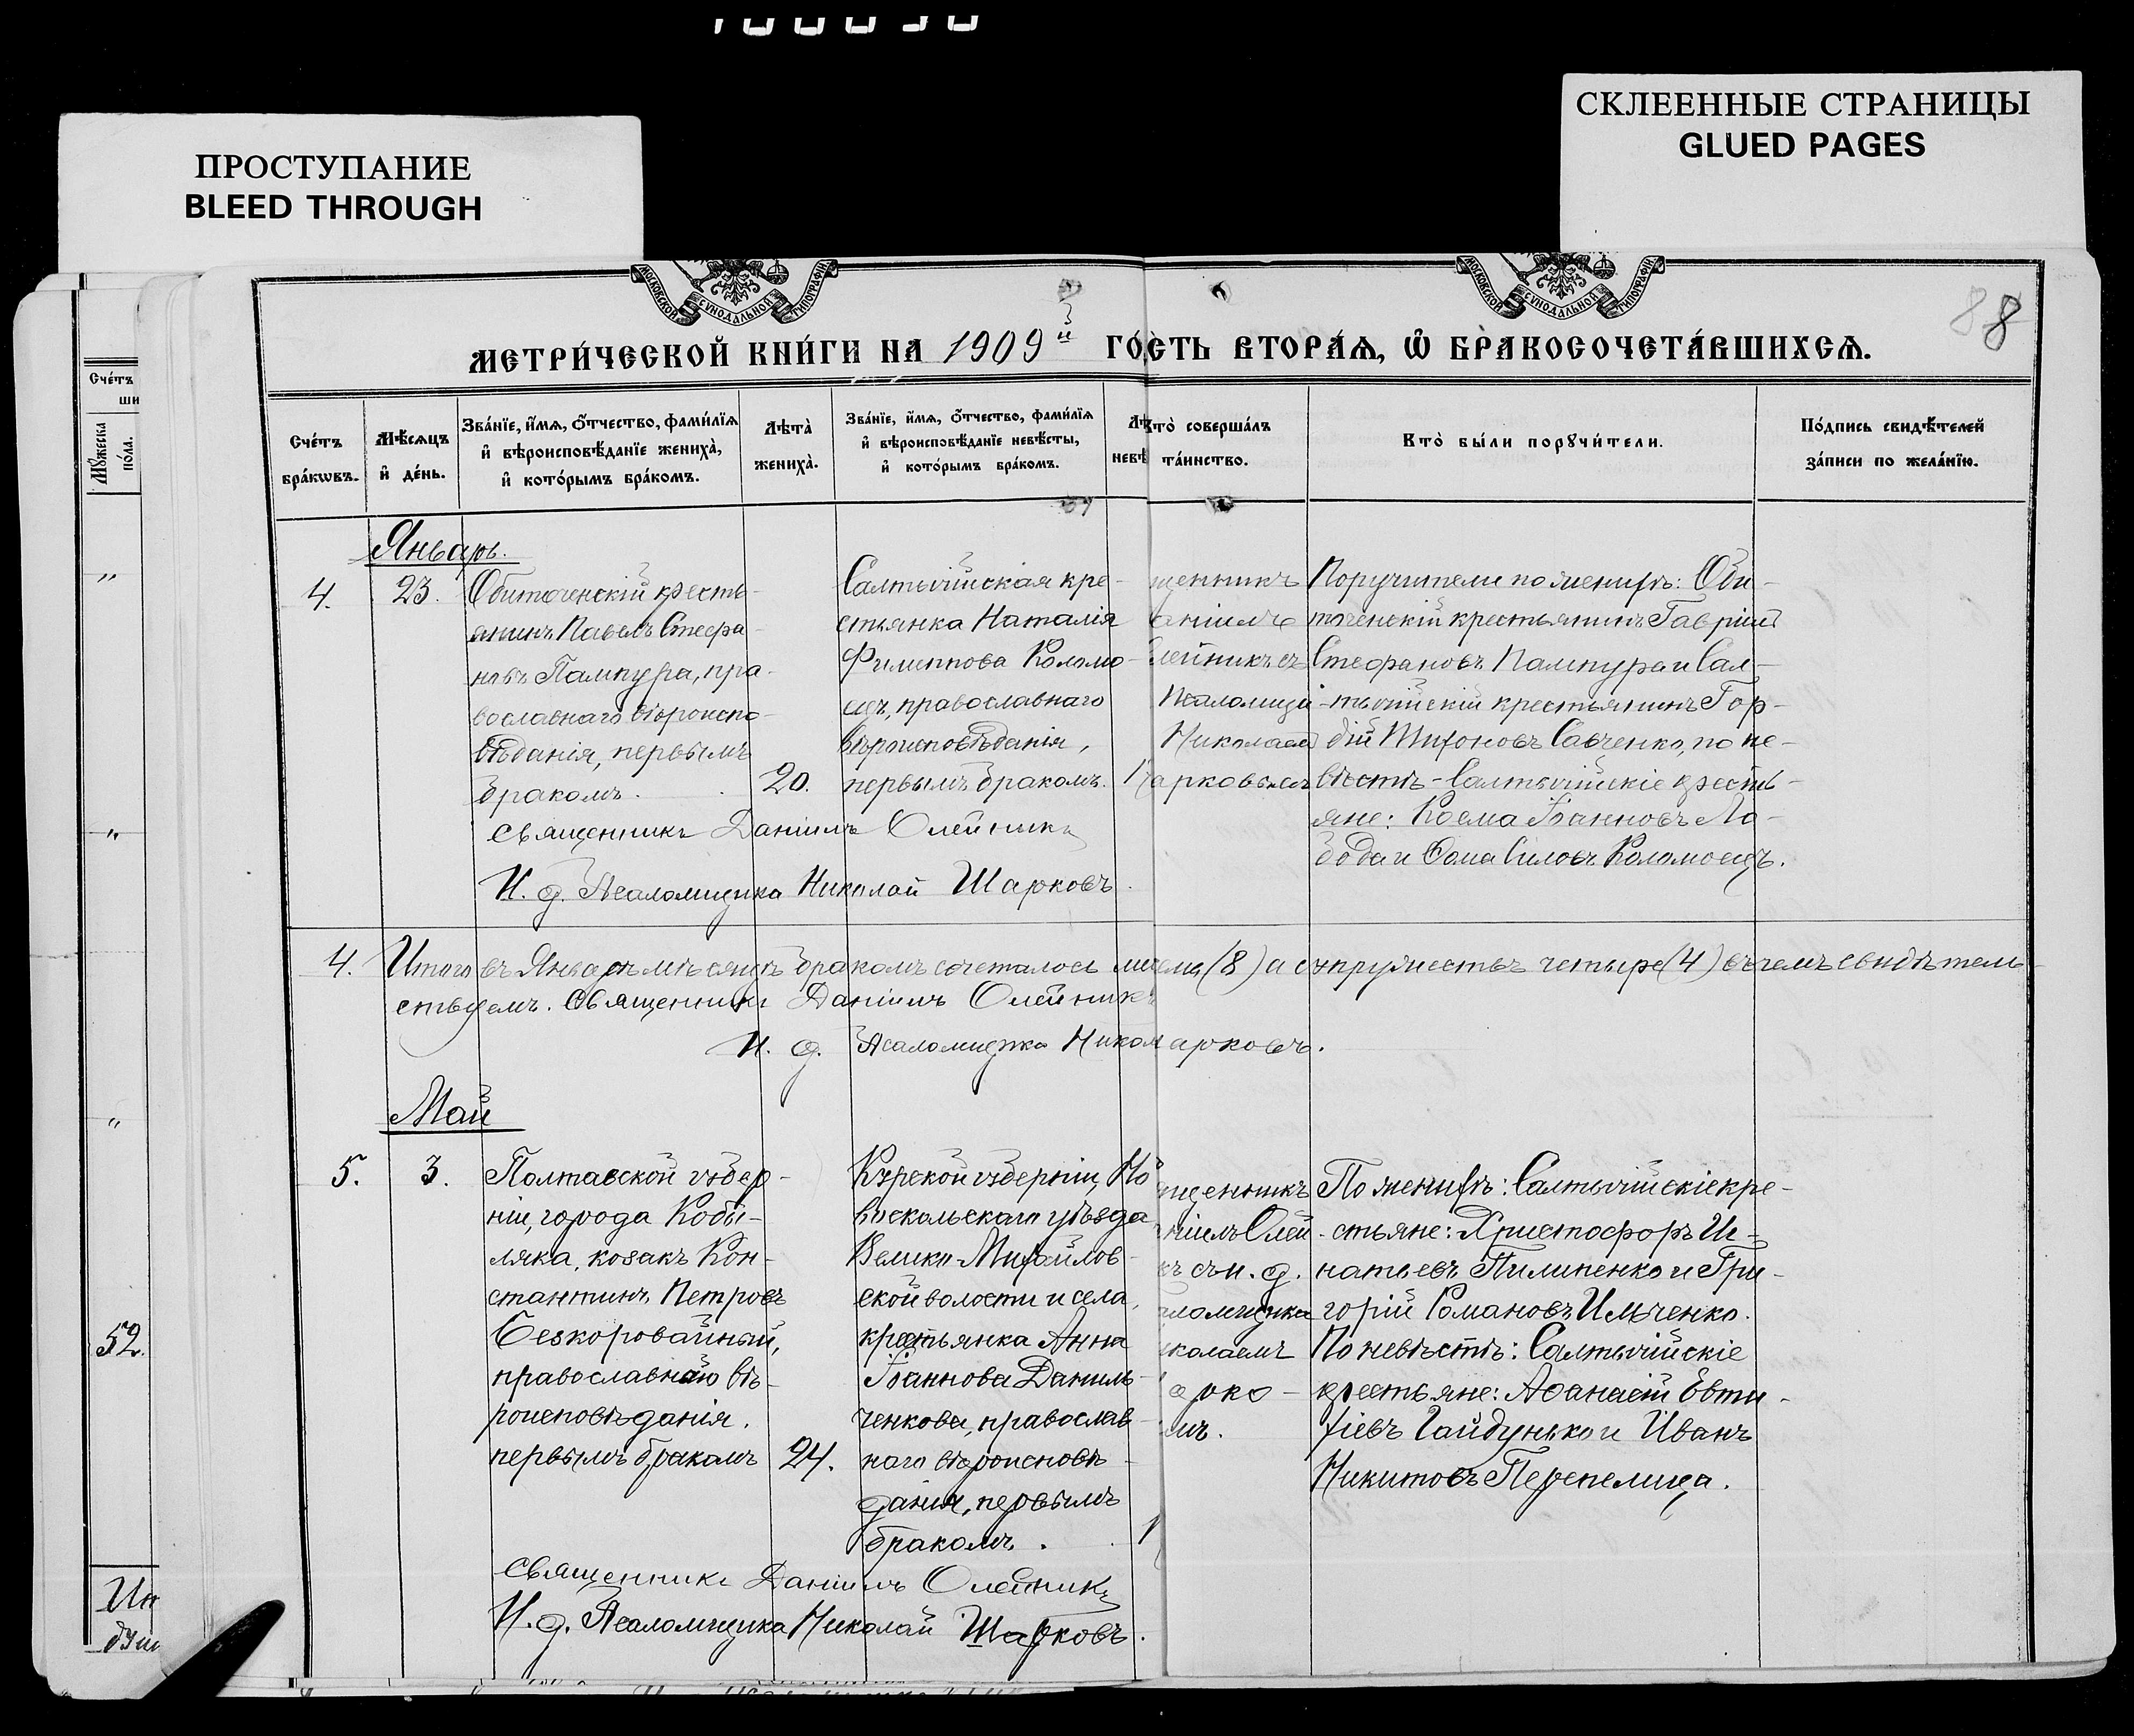 ПРОСТУПАНИЕ
BLEED THROUGH
СКЛЕЕННЫЕ СТРАНИЦЫ
GLUED PAGES
МОСКОВСКОЙ СѴНОДАЛЬНОЙ ТИПОГРАФІИ
МОСКОВСКОЙ СѴНОДАЛЬНОЙ ТИПОГРАФІИ
88
МЕТРИ́ЧЕСКОЙ КНИ́ГИ НА 1909й ГО́ СТЬ ВТОРА́Ѧ, Ѡ҆ БРАКОСОЧЕТА́ВШИХСѦ.
Сче́тъ
ши
Мꙋ́жеска
по́ла.
Сче́тъ
бра́кѡвъ.
Мѣ́сѧцъ
и҆ де́нь.
Зва́нїе, и҆́мѧ, ѻ҆́тчество, фами́лїѧ
и҆ вѣроисповѣ́данїе жениха̀,
и҆ кото́рымъ бра́комъ.
Лѣ́та̀
жениха̀.
Зва́нїе, и҆́мѧ, ѻ҆́тчество, фами́лїѧ
и҆ вѣроисповѣ́данїе невѣ́сты,
и҆ кото́рымъ бра́комъ.
Лѣ
невѣ
Кто̀ соверша́лъ
та́инство.
Кто̀ бы́ли порꙋчи́тели.
По́дпись свидѣ́телей
за́писи по жела́нїю.
Январь.
4.
23.
Обиточенскій кресть-
янинъ Павелъ Стефа-
новъ Пампура, пра-
вославнаго вѣроиспо-
вѣданія, первымъ
бракомъ.
20.
Салтычійская кре-
стьянка Наталія
Филиппова Коломо-
ецъ, православнаго
вѣроисповѣданія,
первымъ бракомъ.
1
щенникъ
аніилъ
лейникъ съ
Псаломщи
Николаем
арковымъ
Поручители по женихѣ: Оби-
точенскій крестьянинъ Гавріил
Стефановъ Пампура и Сал-
тычійскій крестьянинъ Гор-
дій Тихоновъ Савченко, по не-
вѣстѣ - Салтычійскіе кресть-
яне: Косма Іоанновъ Ло-
бода и Ѳома Силовъ Коломоецъ.
Священникъ Даніилъ Олейникъ
И. д. Псаломщика Николай Шарковъ.
4.
Итого въ Январѣ мѣсяцѣ бракомъ сочеталось лицемъ (8) а супружествъ четыре (4) въ чемъ свидѣтель-
ствуемъ. Священникъ Даніилъ Олейникъ
И. д. Псаломщика Никол арковъ.
Май
5.
3.
Полтавской губер-
ніи, города Кобы-
ляка, козакъ Кон-
стантинъ Петровъ
Безкоровайный,
православнаго вѣ-
роисповѣданія.
первымъ бракомъ
24.
Курской губерніи, Но
воскольскаго уѣзда
Велико-Михайлов-
ской волости и села,
крестьянка Анна
Іоаннова Даниль-
ченкова, православ-
наго вѣроисповѣ-
данія, первымъ
бракомъ.
1
ященникъ
ніилъ Олей-
къ съ и. д.
аломщика
иколаемъ
арко-
ымъ.
По женихѣ: Салтычійскіе кре-
стьяне: Христофоръ Иг-
натьевъ Пилипенко и Гри-
горій Романовъ Ильченко.
По невѣстѣ: Салтычійскіе
крестьяне: Аѳанасій Евти-
хіевъ Гайдунько и Иванъ
Никитовъ Перепелица.
Священникъ Даніилъ Олейникъ
И. д. Псаломщика Николай Шарковъ.
52.
Ит